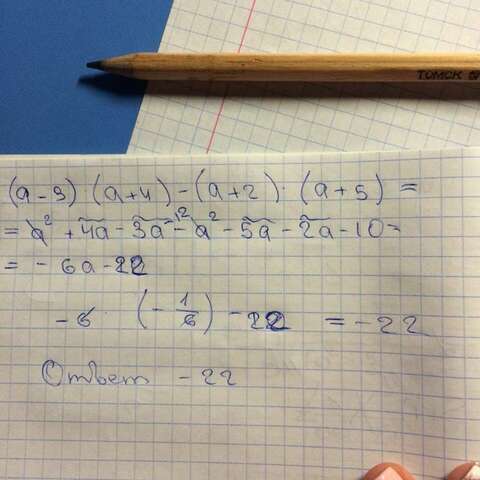 ТОМСК
(a-3) (a+4) - (a+2) · (a+5) =
= a² + 4a - 3a - 12 - a² - 5a - 2a - 10 =
= - 6a - 22
-6 · (- 1/6) - 22 = -22
Ответ -22